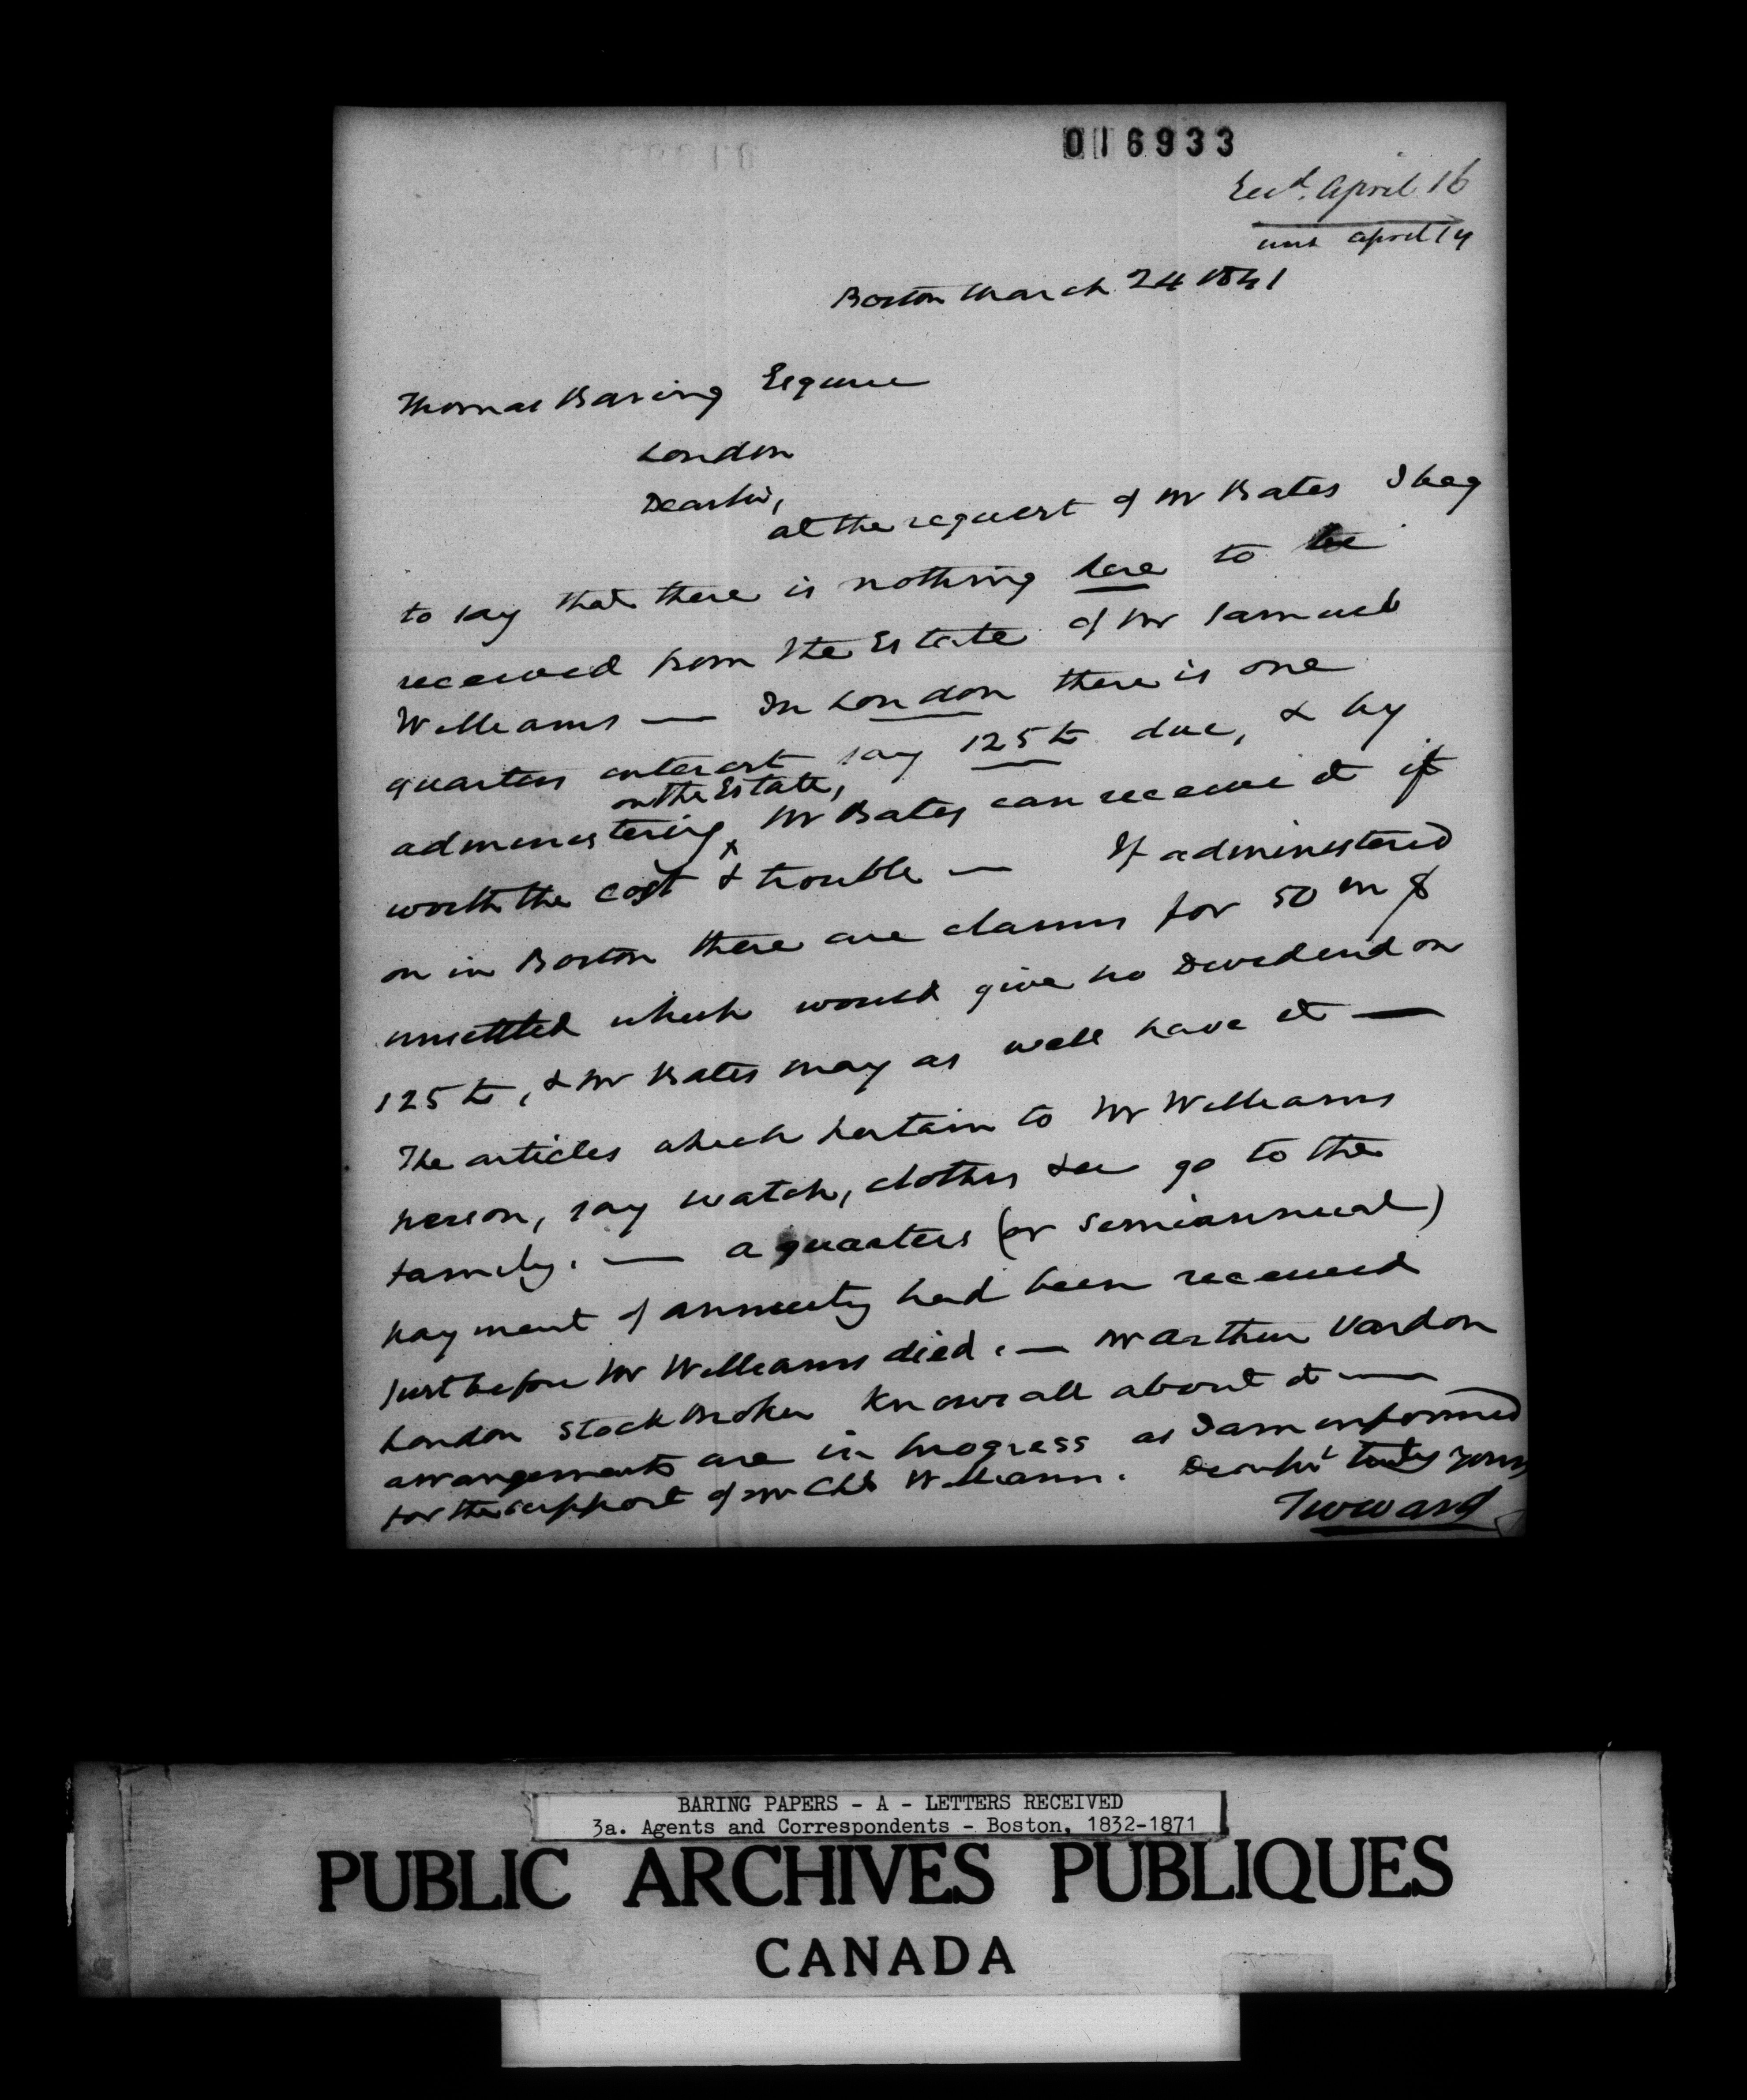 016933
Recd. April 16
April 14
Boston March 24 1841
Thomas Baring Esquire
London
Dear Sir,
at the request of Mr Bates I beg
to say that there is nothing here to be
received from the Estate of Mr Samuel
Williams — In London there is one
quarters interest say 125 £ due, & by
on the Estate,
administering Mr Bates can receive it if
worth the cost & trouble — If administered
on in Boston there are claims for 50 m $
unsettled which would give no Dividend on
125 £, & Mr Bates may as well have it —
The articles which pertain to Mr Williams
person, say watch, clothes &c go to the
family. — a quarters (or semiannual)
payment of annuity had been received
just before Mr Williams died. — Mr Arthur Vardon
London Stock Broker knows all about it —
arrangements are in progress as I am informed
for the support of Mr Chs Williams. Dear Sir truly yours
TWWard
BARING PAPERS - A - LETTERS RECEIVED
3a. Agents and Correspondents - Boston, 1832-1871
PUBLIC ARCHIVES PUBLIQUES
CANADA